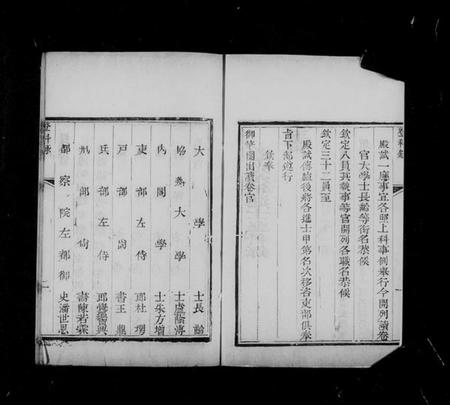 登科錄
殿試一應事宜各照上科事例來行今開列讀卷
官大學士長齡等銜名恭候
欽定八員其執事等官開列各職名恭候
欽定三十二員至
殿試傳臚後將各進士甲第名次移咨吏部俱奉
旨下部遵行
欽奉
御筆圈出讀卷官
大學士長齡
協辦大學士盧蔭溥
內閣學士朱方增
吏部左侍郎杜堮
戶部尚書王鼎
兵部左侍郎
部尚書陳若霖
都察院左都御史潘世恩
登科錄
二